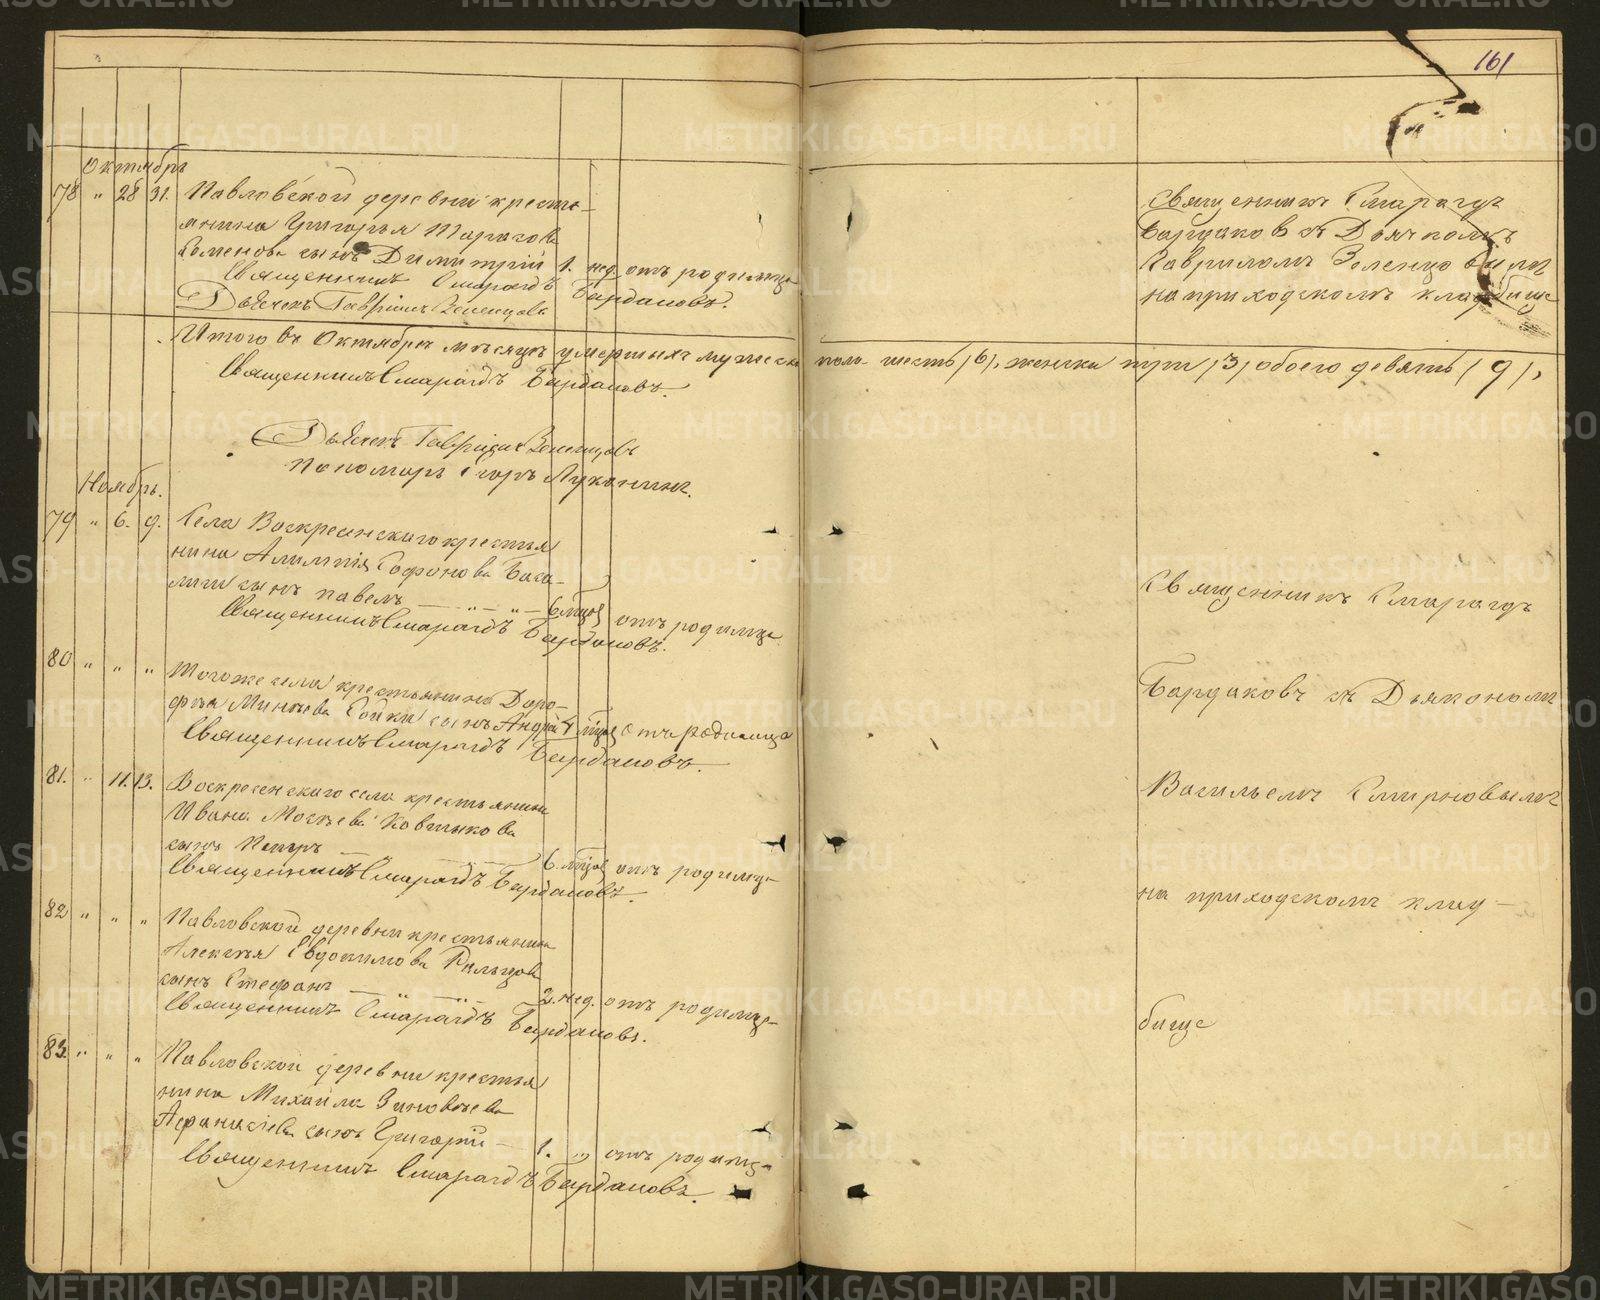 161
Октябрь
78 " 28 31. Павловской деревни кресть-
янина Григорья Тарасова
Семенова сынъ Димитрій 1. нед. отъ родимца
Священникъ Смарагдъ Бардаковъ.
Дьячекъ Гавріилъ Зеленцовъ
Священникъ Смарагдъ
Бардаковъ съ Дьячкомъ
Гавриломъ Зеленцовымъ
на приходскомъ кладбище
Итого въ Октябре месяце умершихъ мужеска пола шесть /6/, женска три /3/ обоего девять /9/,
Священникъ Смарагдъ Бардаковъ.
Дьячекъ Гавріилъ Зеленцовъ
Пономарь Егоръ Луканинъ.
Ноябрь.
79 " 6. 9. Села Воскресенскаго крестья
нина Алимпія Софонова
сынъ павелъ 6 мцов отъ родимца
Священникъ Смарагдъ Бардаковъ.
80 " " " Тогоже села крестьянина Доро-
фея Минеева сынъ Андрей 4 мцов отъ родимца
Священникъ Смарагдъ Бардаковъ.
81. " 11. 13. Воскресенскаго села крестьянина
Ивана Мосеева Ковтыкова
сынъ Петръ 6. мцов отъ родимца
Священникъ Смарагдъ Бардаковъ.
82 " " " Павловской деревни крестьянина
Алексея Евдокимова
сынъ Стефанъ 2. нед. отъ родимца
Священникъ Смарагдъ Бардаковъ.
83. " " " Павловской деревни крестья
нина Михаила Зиновьева
Афанасіева сынъ Григорій 1. " отъ родимца
Священникъ Смарагдъ Бардаковъ.
Священникъ Смарагдъ
Бардаковъ съ Дьякономъ
Васильемъ Смирновымъ
на приходскомъ клад-
бище
METRIKI.GASO-URAL.RU